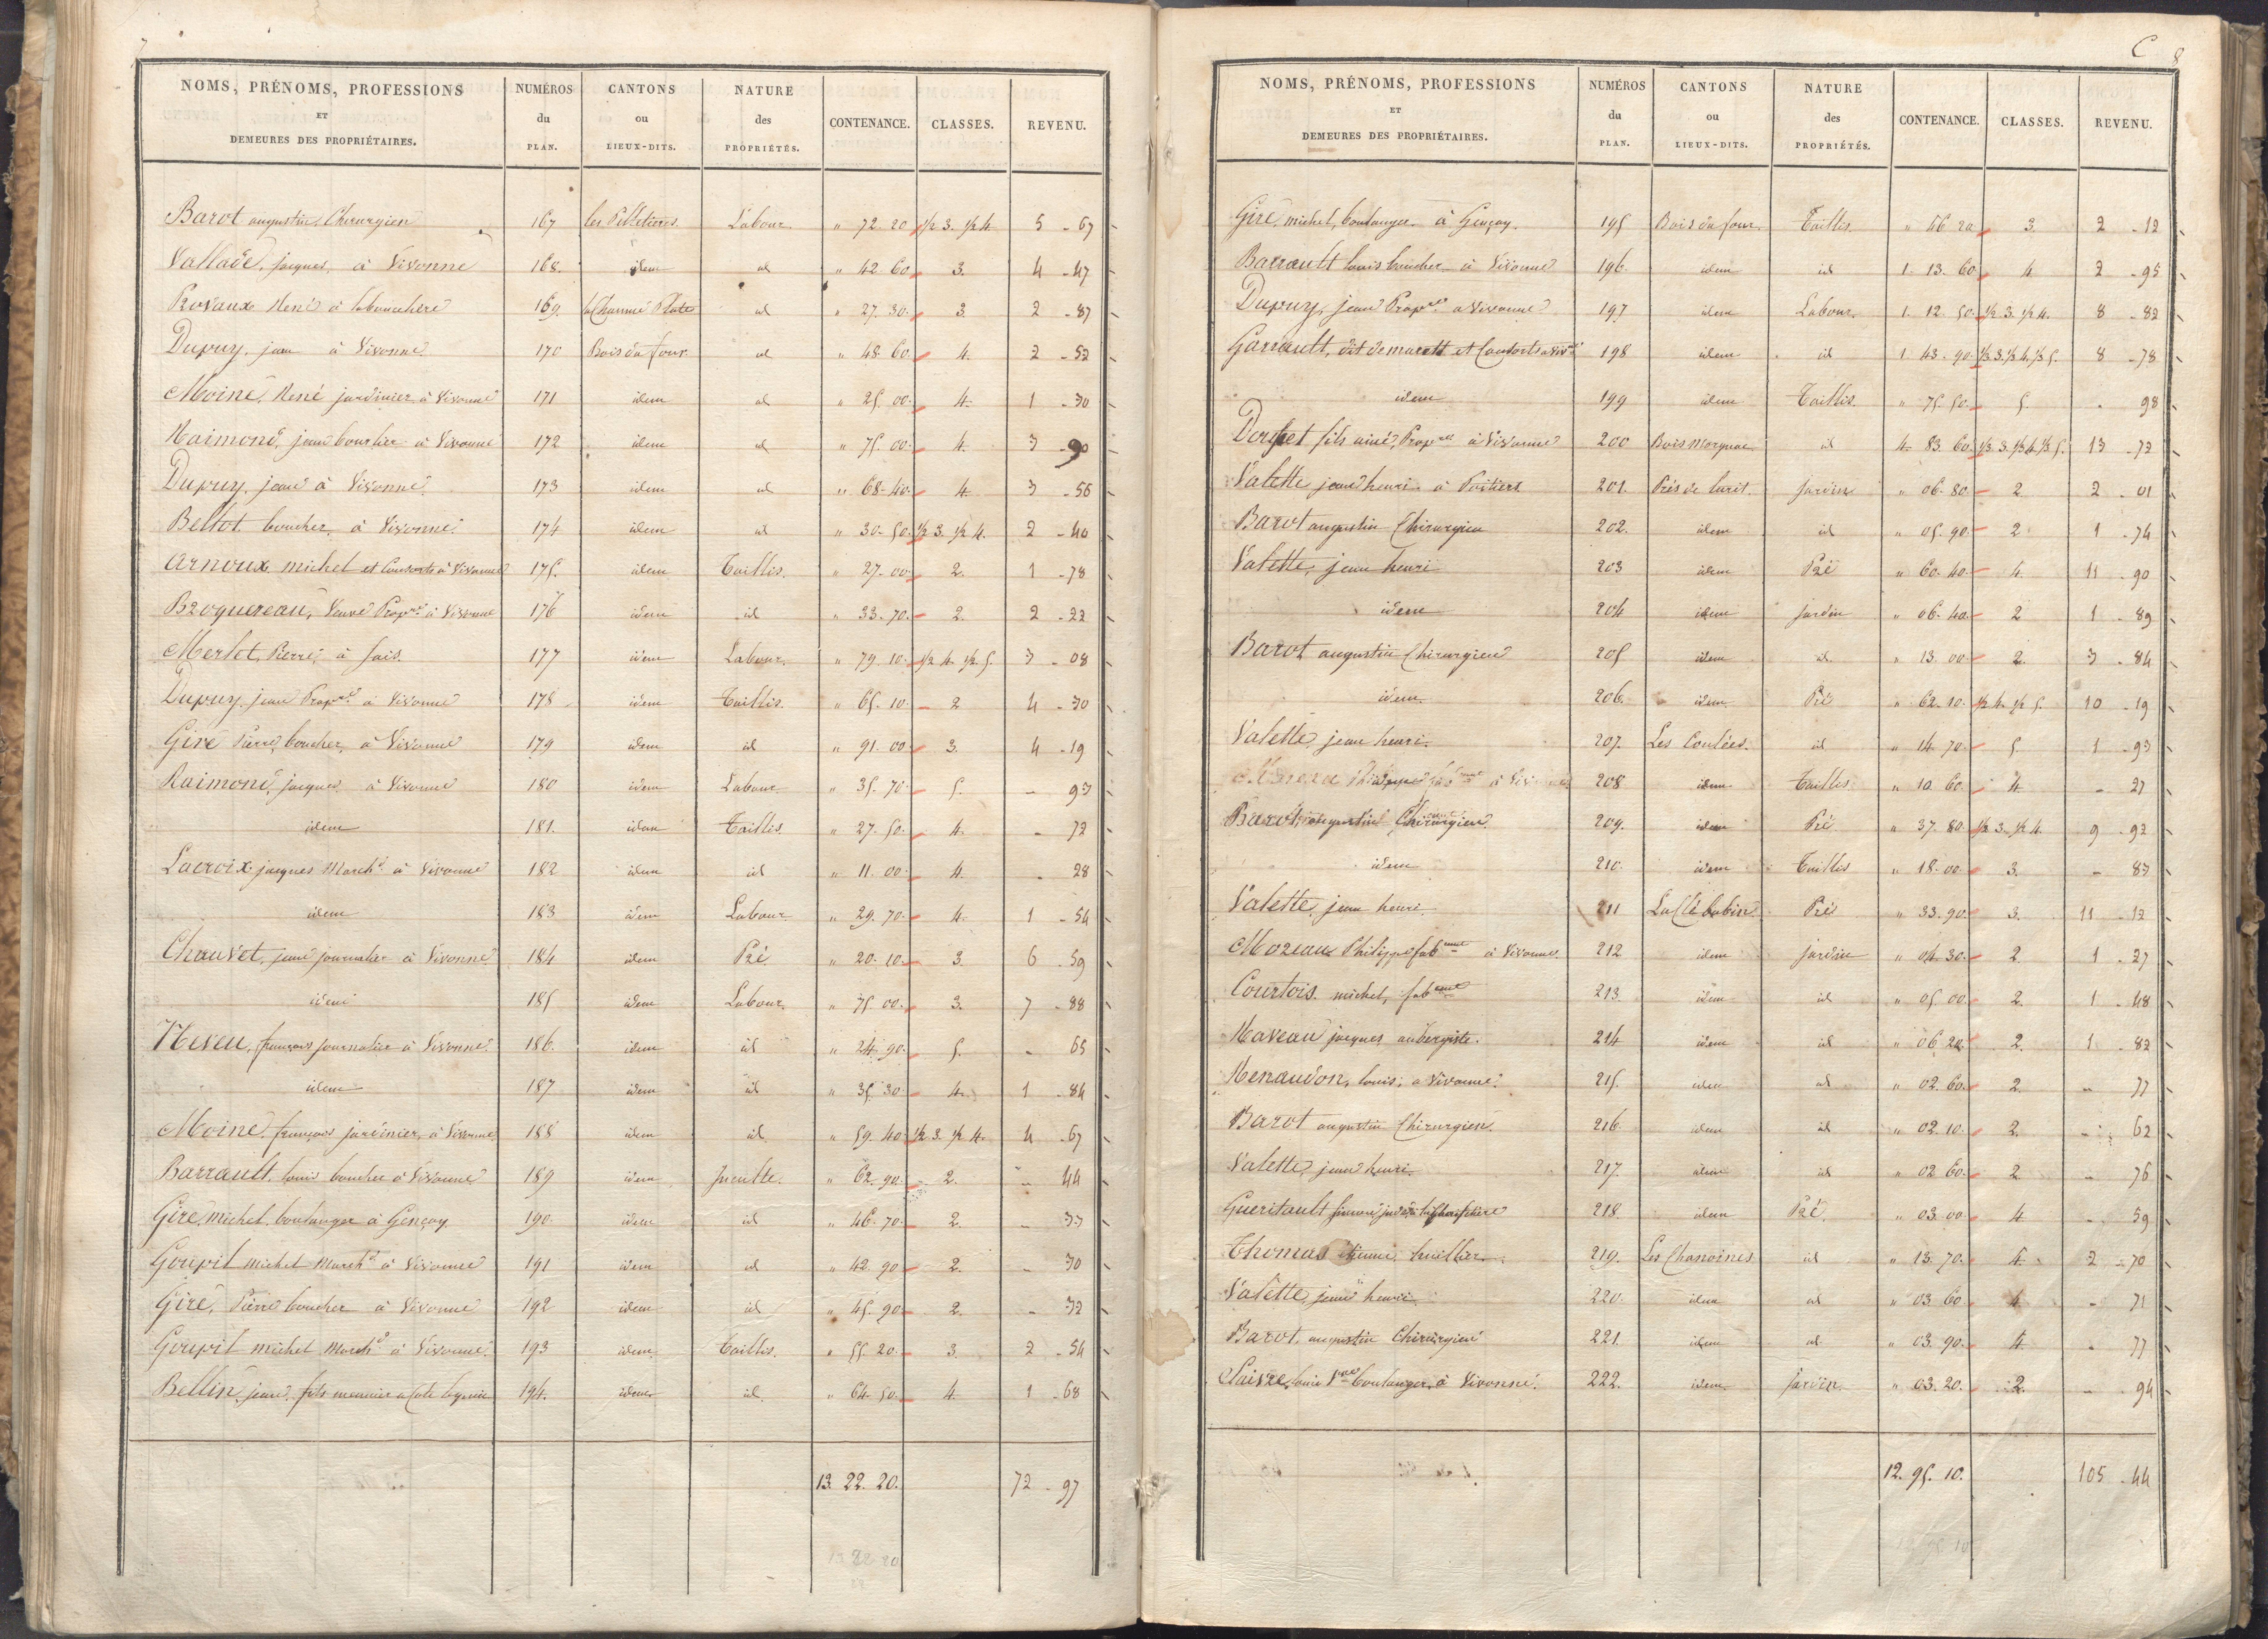 7
NOMS, PRÉNOMS, PROFESSIONS ET DEMEURES DES PROPRIÉTAIRES. NUMÉROS du PLAN. CANTONS ou LIEUX-DITS. NATURE des PROPRIÉTÉS. CONTENANCE. CLASSES. REVENU.
Barot augustin, Chirurgien 167 les Labour " 72. 20 1/2 3. 1/2 4 5 - 67
Vallade, jacques, à Vivonne 168. idem id " 42. 60 3. 4 - 47
René à 169. la Chaume Plate id " 27. 30. 3. 2 - 87
Dupuy, jean à Vivonne 170 Bois du four id " 48. 60 4. 2 - 52
Moine, René jardinier à Vivonne 171 idem id " 25. 00 4. 1 - 30
Raimond, jean bourlier à Vivonne 172 idem id " 75. 00 4. 3 - 90
Dupuy, jean à Vivonne 173 idem id " 68. 40 4 3 - 56
Bellot boucher, à Vivonne 174 idem id " 30. 50. 1/2 3. 1/2 4. 2 - 40
Arnoux michel et Consorts à Vivonne 175. idem Taillis. " 27. 00 2. 1 - 78
Broquereau, Veuve Propre à Vivonne 176 idem id " 33. 70. 2. 2 - 22
Merlet, Pierre, à fais. 177 idem Labour. " 79. 10. 1/2 4. 1/2 5. 3 - 08
Dupuy, jean Propre à Vivonne 178 idem Taillis. " 65. 10. 2 4 - 30
Giré Pierre, boucher, à Vivonne 179 idem id " 91. 00 3. 4 - 19
Raimond, jacques à Vivonne 180 idem Labour " 35. 70 5. - 93
idem 181. idem Taillis. " 27. 50. 4. - 72
Lacroix jacques Marchd à Vivonne 182 idem id " 11. 00. 4. - 28
idem 183 idem Labour " 29. 70. 4. 1 - 54
Chauvet, jean journalier à Vivonne 184 idem Pré " 20. 10. 3. 6 - 59
idem 185 idem Labour. " 75. 00. 3. 7 - 88
Neveu, françois journalier à Vivonne 186. idem id " 24. 90. 5. - 65
idem 187 idem id " 35. 30. 4. 1 - 84
Moine, françois jardinier, à Vivonne 188 idem id. " 59. 40. 1/2 3. 1/2 4. 4 - 67
Barrault, louis boucher à Vivonne 189 idem Inculte. " 62. 90. 2. - 44
Giré, michel, boulanger à Gençay 190. idem id " 46. 70. 2. - 33
Goupil michel Marchd à Vivonne 191 idem id " 42. 90 2. - 30
Giré, Pierre boucher à Vivonne 192 idem id " 45. 90 2. - 32
Goupil michel Marchd à Vivonne 193 idem Taillis. " 55. 20. 3. 2 - 54
Bellin, jean, fils 194. idem id " 64. 50. 4. 1 - 68
13. 22. 20. 72 - 97
C 8
NOMS, PRÉNOMS, PROFESSIONS ET DEMEURES DES PROPRIÉTAIRES. NUMÉROS du PLAN. CANTONS ou LIEUX-DITS. NATURE des PROPRIÉTÉS. CONTENANCE. CLASSES. REVENU.
Giré michel, boulanger à Gençay. 195 Bois du four. Taillis. " 46. 20 3. 2 - 12
Barrault louis boucher à Vivonne 196. idem id 1. 13. 60 4 2 - 95
Dupuy, jean Propre à Vivonne 197 idem Labour. 1. 12. 50. 1/2 3. 1/2 4. 8 - 82
Garrault, dit et Consorts à 198 idem id 1. 43. 90. 1/3 3. 1/3 4. 1/3 5. 8 - 78
idem 199 idem Taillis. " 75. 50. 5. - 98
fils ainé, Propre à Vivonne 200 Bois id 4. 83. 60. 1/3 3. 1/3 4. 1/3 5. 13 - 72
Valette jean henri à Poitiers 201. Prés de jardin " 06. 80. 2 2 - 01
Barot augustin Chirurgien 202. idem id " 05. 90. 2 1 - 74
Valette, jean henri 203 idem Pré " 60. 40. 4. 11 - 90
idem 204 idem jardin " 06. 40. 2 1 - 89
Barot augustin Chirurgien 205 idem id. " 13. 00. 2. 3 - 84
idem. 206. idem Pré " 62. 10. 1/2 4. 1/2 5. 10 - 19
Valette, jean henri. 207. Les Coulées. id " 14. 70. 5. 1 - 93
208. idem Taillis " 10. 60. 4 - 27
Barot, augustin Chirurgien. 209. idem Pré " 37. 80. 1/2 3. 1/2 4. 9 - 92
idem 210. idem Taillis " 18. 00 3. - 83
Valette, jean henri. 211 Pré " 33. 90. 3. 11 - 12
Moreau Philippe à Vivonne 212 idem jardin " 04. 30. 2. 1 - 27
Courtois michel, 213 idem id " 05. 00. 2. 1 - 48
Naveau jacques aubergiste. 214 idem id " 06. 20. 2. 1 - 82
Renaudon, louis, à Vivonne. 215. idem id " 02. 60. 2. - 77
Barot augustin Chirurgien. 216. idem id " 02. 10. 2. - 62
Valette, jean henri. 217. idem id " 02. 60. 2 - 76
Gueritault 218. idem Pré. " 03. 00 4 - 59
Thomas huillier 219. Les Chanoines id " 13. 70. 4. 2 - 70
Valette, jean henri 220. idem id " 03. 60 4 - 71
Barot, augustin Chirurgien 221. idem id " 03. 90. 4. - 77
louis boulanger, à Vivonne. 222. idem, jardin. " 03. 20. 2. - 94
12. 95. 10. 105 - 44